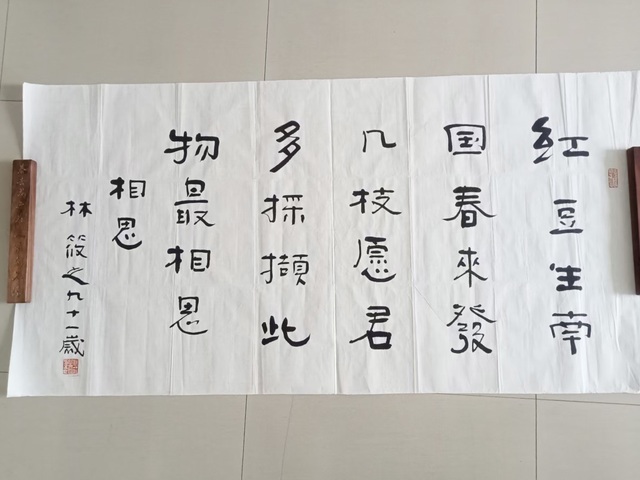 紅豆生南
国春來發
几枝愿君
多採擷此
物最相思
相思
林筱之九十一歲